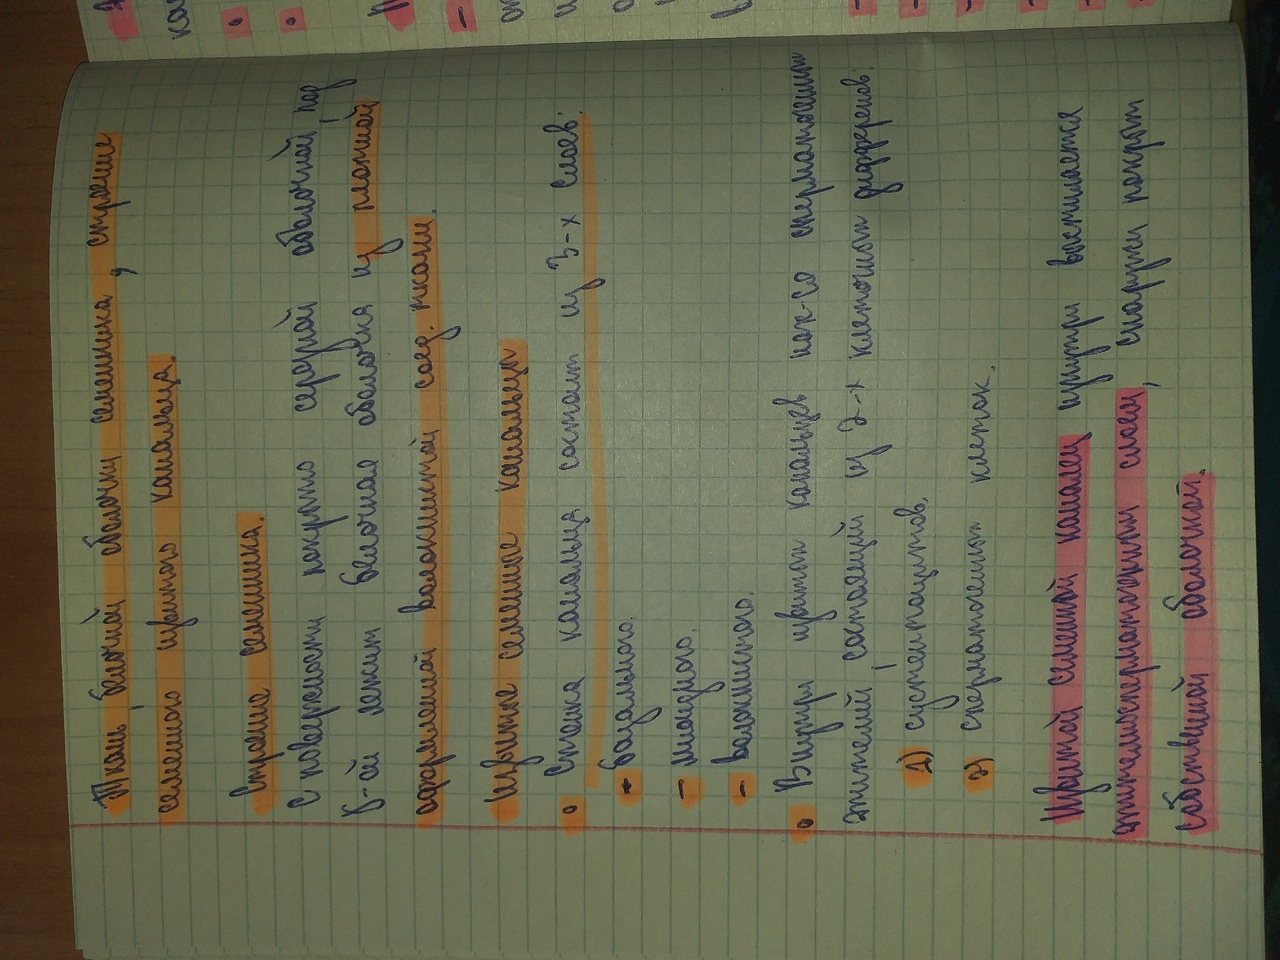 Ткань белочной оболочки семенника, строение
семенного извитого канальца.
Строение семенника.
С поверхности покрыто серозной оболочкой, под
к-ой лежит белочная оболочка из плотной
оформленной волокнистой соед. ткани.
Извитые семенные канальцы
• Стенка канальца состоит из 3-х слоев:
- базального.
- миоидного.
- волокнистого.
• Внутри извитых канальцев нах-ся сперматогенный
эпителий, состоящий из 2-х клеточных дифферонов:
1) сустентоцитов.
2) сперматогенных клеток.
Извитой семенной каналец изнутри выстилается
эпителиосперматогенным слоем, снаружи покрыт
собственной оболочкой.